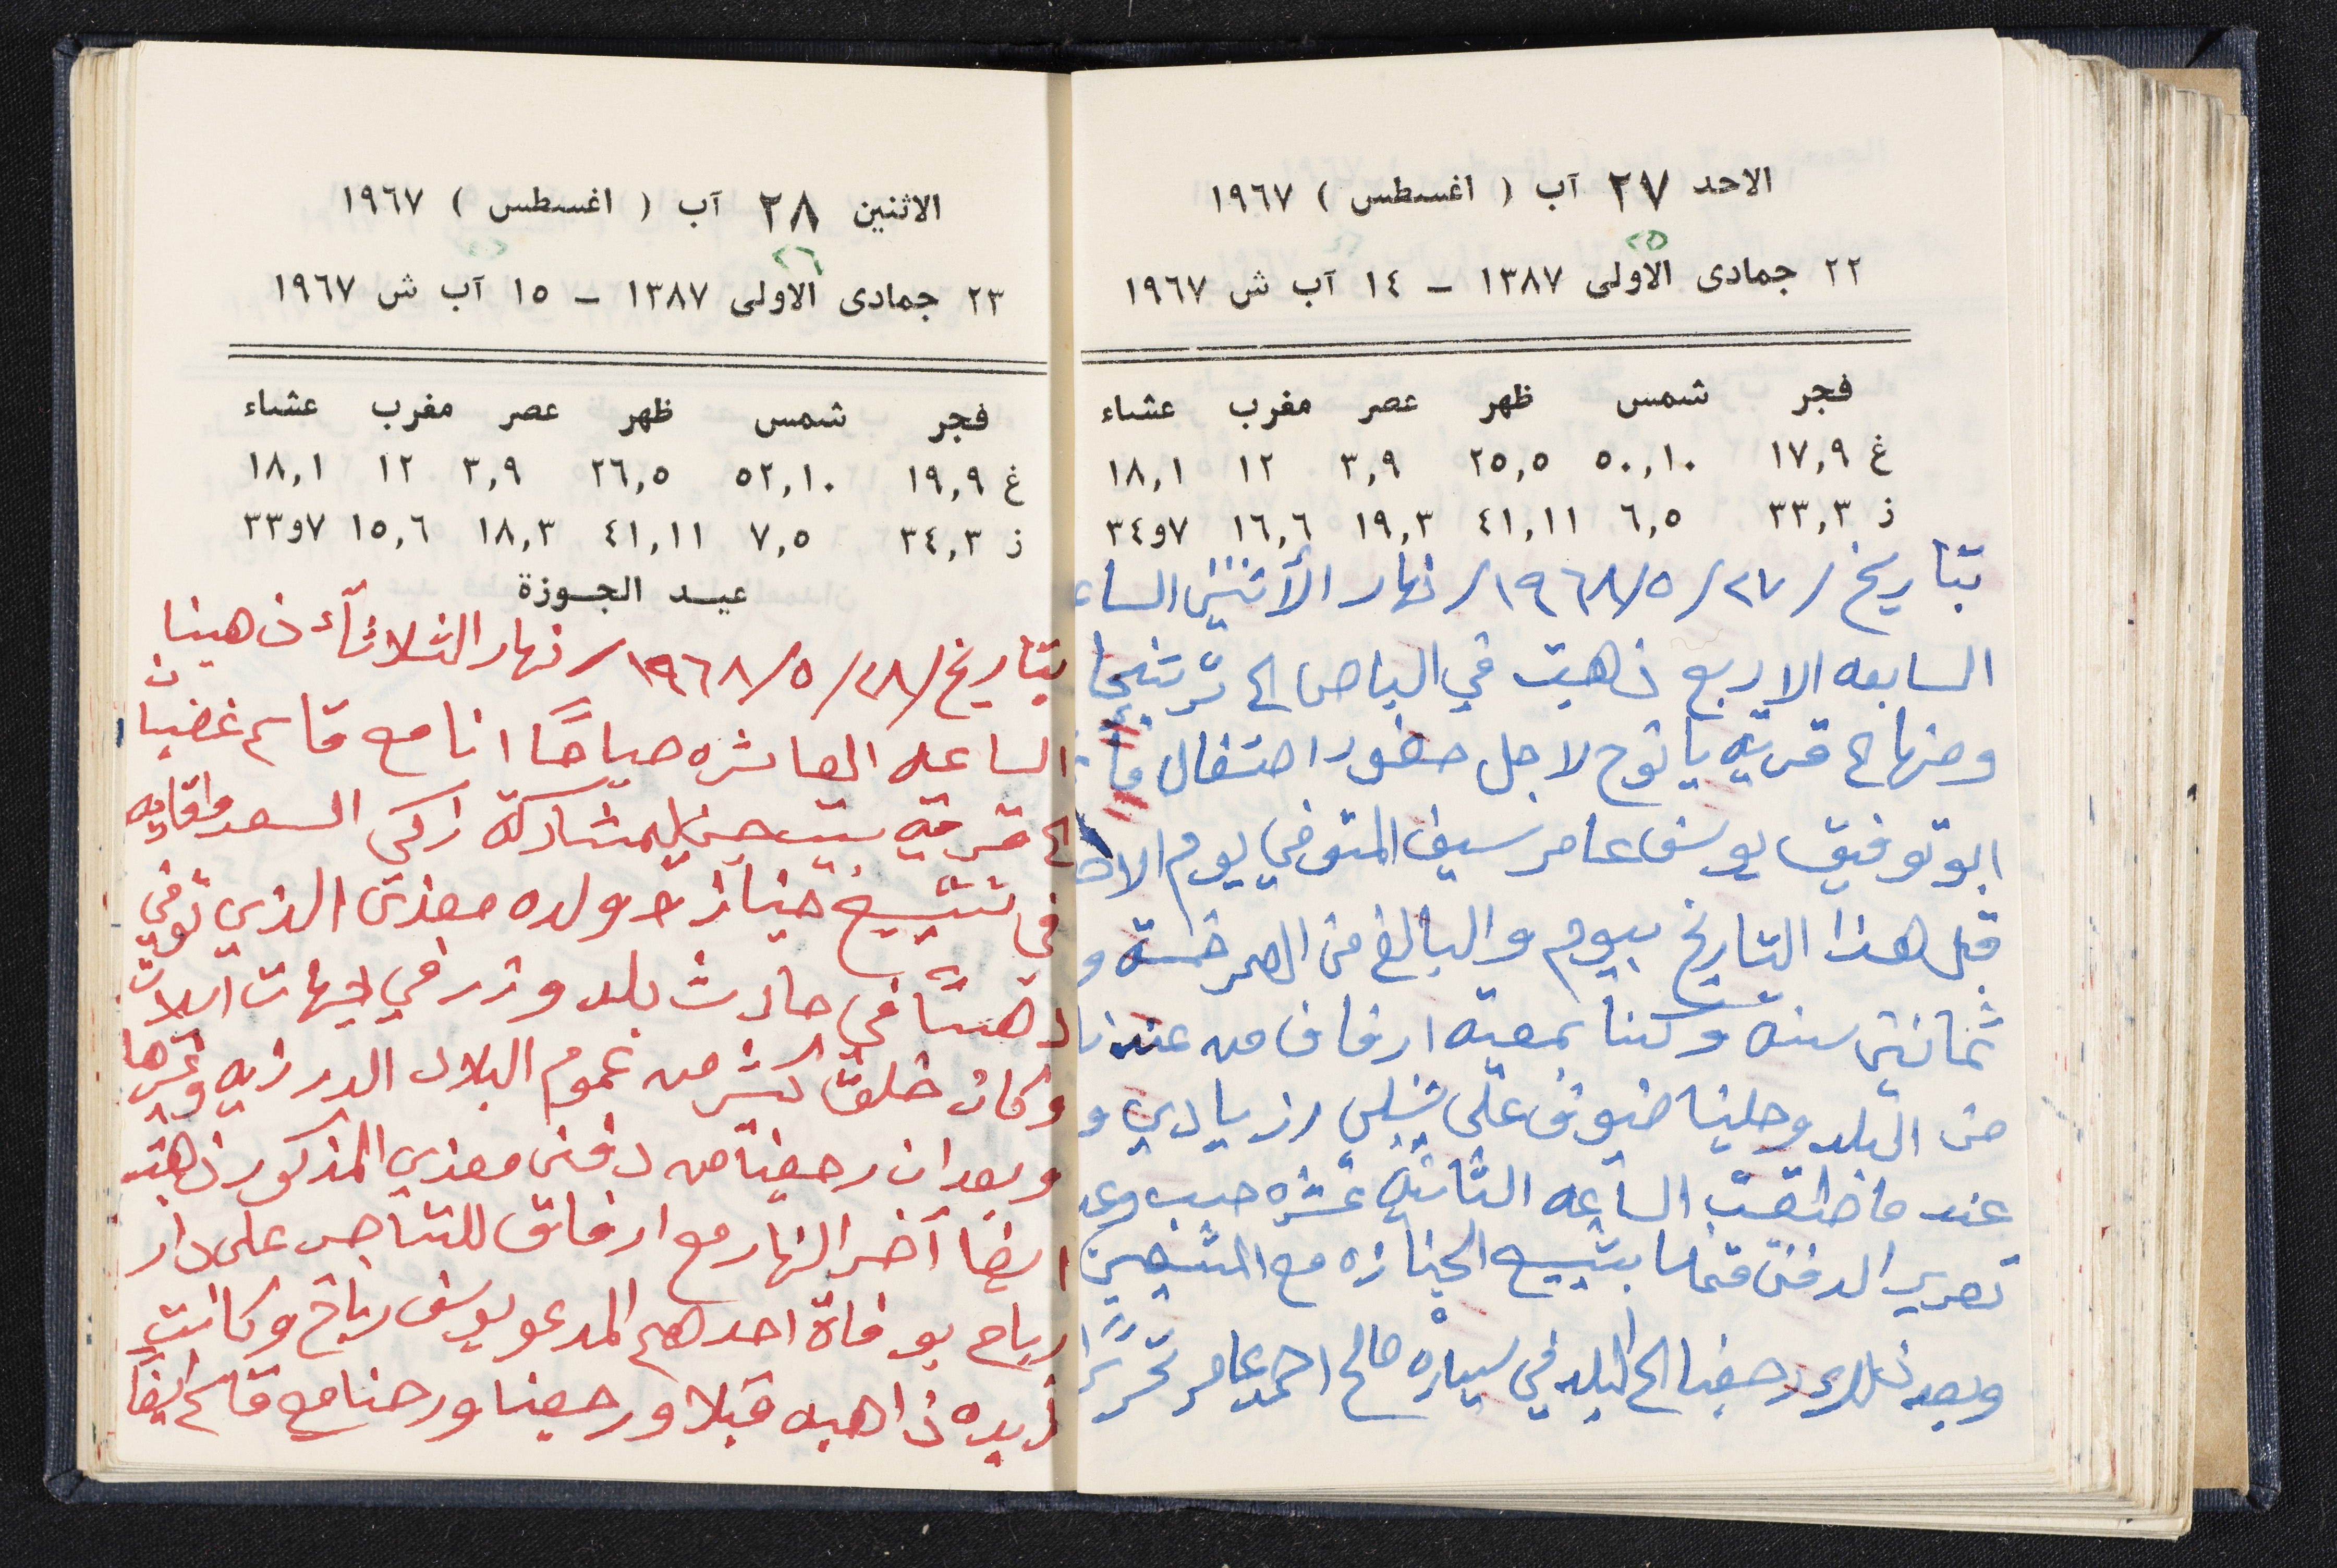 الاحد ٢٧ آب ( اغسطس ) ١٩٦٧
٢٥
٢٢ جمادى الاولى ١٣٨٧ – ١٤ آب ش ١٩٦٧
فجر شمس ظهر عصر مغرب عشاء
غ ١٧,٩ ٥٠,١٠ ٢٥,٥ ٣,٩ ١٢ ١٨,١
ز ٣٣,٣ ٦,٥ ٤١,١١ ١٩,٣ ١٦,٦ ٧و٣٤
بتاريخ /٢٧/٥/١٩٦٨/ نهار الأثنين الساع
السابعه الاربع ذهبت في الباص الى ترشيحا
ومنها الى قرية يانوح لاجل حضور احتفال
ابو توفيق يوسف عامر سيف المتوفي يوم الاحد
قبل هذا التاريخ بيوم والبالغ من العمر خمسة و
ثمانين سنه وكنا بمعية ارفاق من عندنا
من البلد وحلينا ضيوف على شبلي رزيادي و
عند ما ضقت الساعه الثانية عشره حسب وعد
تعرير الدفن قمنا بتشييع الجنازه مع المشيعين
وبعد ذلك رجعنا الى البلد في سيارة صالح احمد عامر تحريرًا
الاثنين ٢٨ آب ( اغسطس ) ١٩٦٧
٢٦
٢٣ جمادى الاولى ١٣٨٧ – ١٥ آب ش ١٩٦٧
فجر شمس ظهر عصر مغرب عشاء
غ ١٩,٩ ٥٢,١٠ ٢٦,٥ ٣,٩ ١٢ ١٨,١
ز ٣٤,٣ ٧,٥ ٤١,١١ ١٨,٣ ١٥,٦ ٧و٣٣
عيد الجوزة
بتاريخ /٢٨/٥/١٩٦٨/ نهار الثلاثآء ذهبنا
الساعه العاشره صباحًا انا مع قاسم غضبان
الى قرية بيت جن لمشاركة زكي السعد واقاربه
في تشييع جنازة ولده معذى الذي توفي
دهسًا في حادث بلدوزر في جهات ايلات
وكان خلق كثير من عموم البلاد الدرزيه وغيرها
وبعد ان رجعنا من دفن معذى المذكور ذهبت
ايضا آخر النهار مع ارفاق للتناجر على دار
رباح بوفاة احدهم المدعو يوسف رباح وكانت
زيده ذاهبه قبلا ورجعنا ورحنا مع قاسم ايضًا